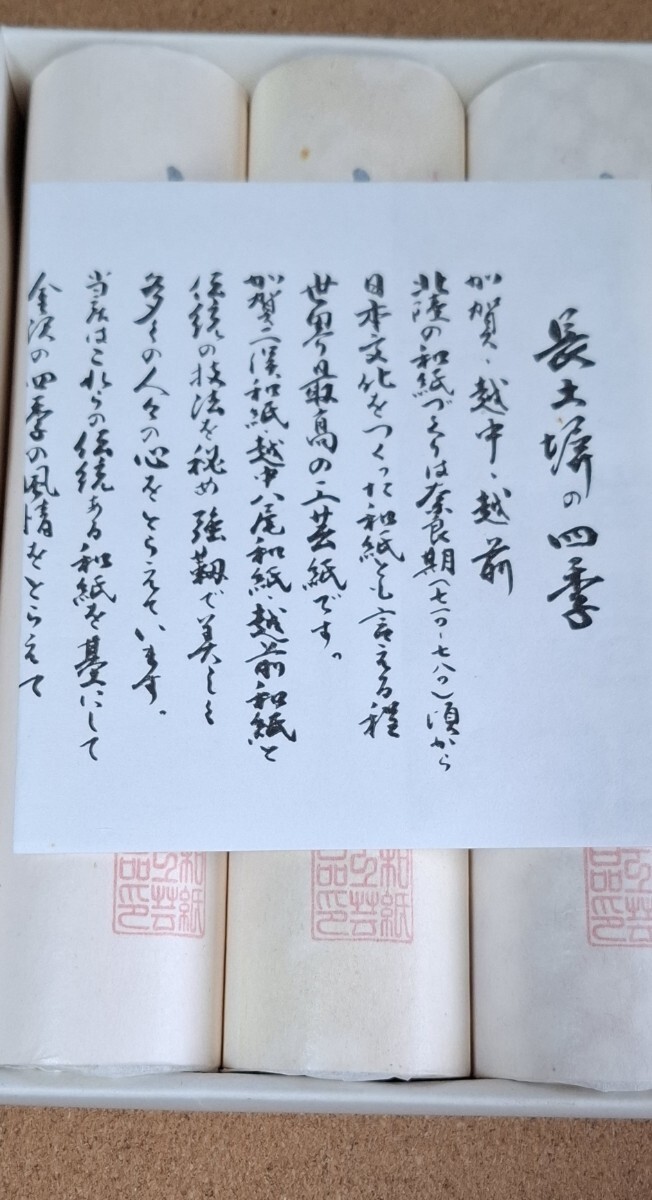 長土塀の四季
加賀、越中、越前
北陸の和紙づくりは奈良期(七一〇〜七八〇)頃から
日本文化をつくった和紙とも言える程
世界最高の工芸紙です。
加賀二俣和紙・越中八尾和紙・越前和紙と
伝統の技法を秘め強靱で美しく
多くの人々の心をとらえています。
当店はこれらの伝統ある和紙を基にして
金沢の四季の風情をとらえて
和紙
工芸
品印
和紙
工芸
品印